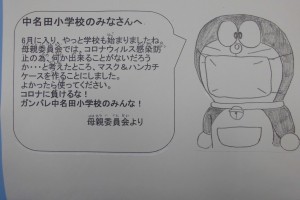 中名田小学校のみなさんへ
6月に入り、やっと学校も始まりましたね。
母親委員会では、コロナウィルス感染防
止の為、何か出来ることがないだろう
か・・・と考えたところ、マスク＆ハンカチ
ケースを作ることにしました。
よかったら使ってください。
コロナに負けるな！
ガンバレ中名田小学校のみんな！
母親委員会より